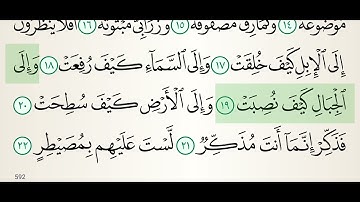 مَوْضُوعَةٌ ١٤ وَنَمَارِقُ مَصْفُوفَةٌ ١٥ وَزَرَابِيُّ مَبْثُوثَةٌ ١٦ أَفَلَا يَنظُرُونَ
إِلَى ٱلْإِبِلِ كَيْفَ خُلِقَتْ ١٧ وَإِلَى ٱلسَّمَآءِ كَيْفَ رُفِعَتْ ١٨ وَإِلَى
ٱلْجِبَالِ كَيْفَ نُصِبَتْ ١٩ وَإِلَى ٱلْأَرْضِ كَيْفَ سُطِحَتْ ٢٠
فَذَكِّرْ إِنَّمَآ أَنتَ مُذَكِّرٌ ٢١ لَّسْتَ عَلَيْهِم بِمُصَيْطِرٍ ٢٢
592